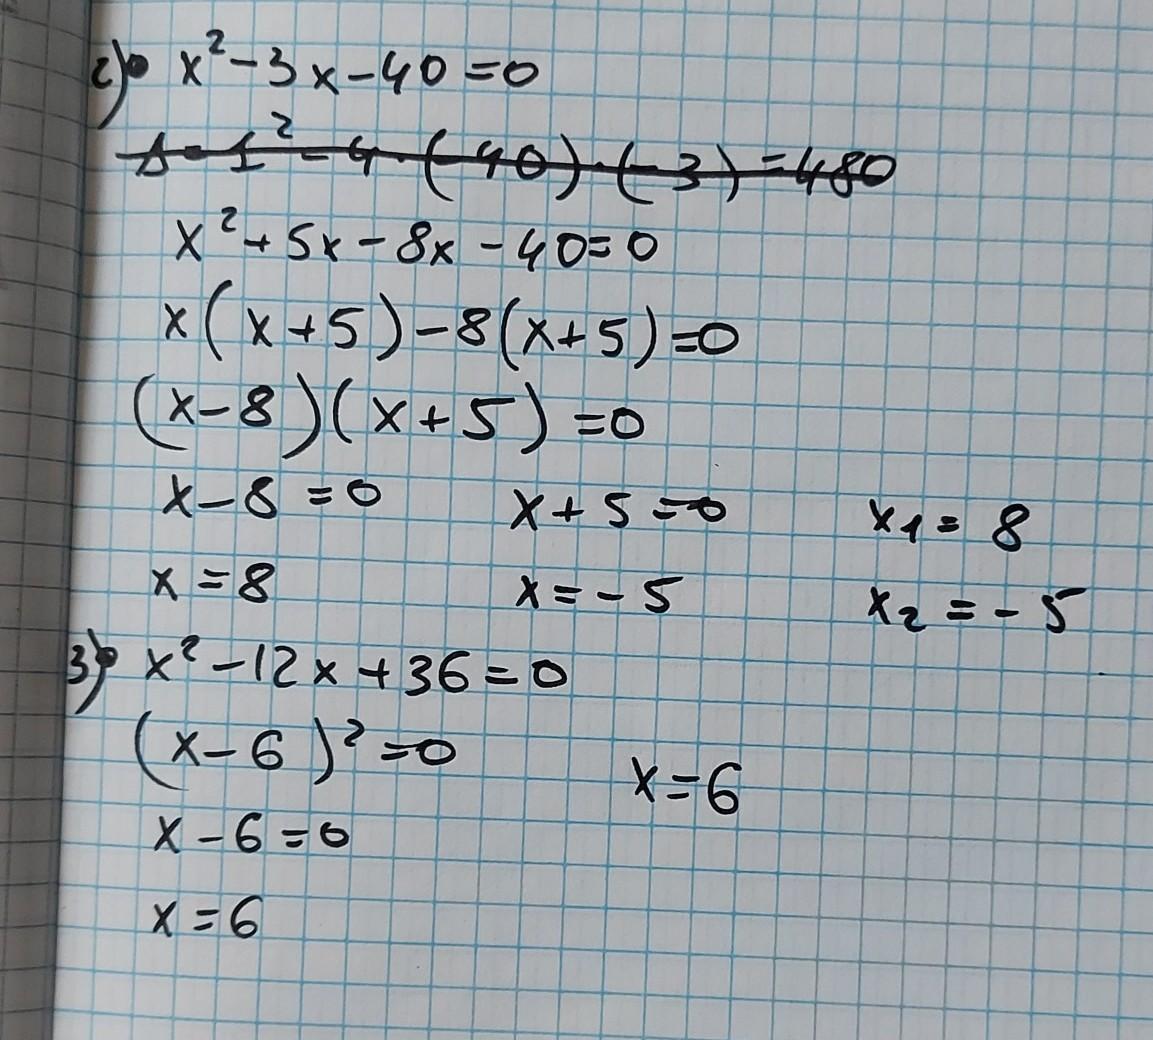 2) x² - 3x - 40 = 0
Δ = 1² - 4 · (-40) · (-3) = 480
x² + 5x - 8x - 40 = 0
x(x + 5) - 8(x + 5) = 0
(x - 8)(x + 5) = 0
x - 8 = 0 x + 5 = 0 x₁ = 8
x = 8 x = - 5 x₂ = - 5
3) x² - 12x + 36 = 0
(x - 6)² = 0 x = 6
x - 6 = 0
x = 6